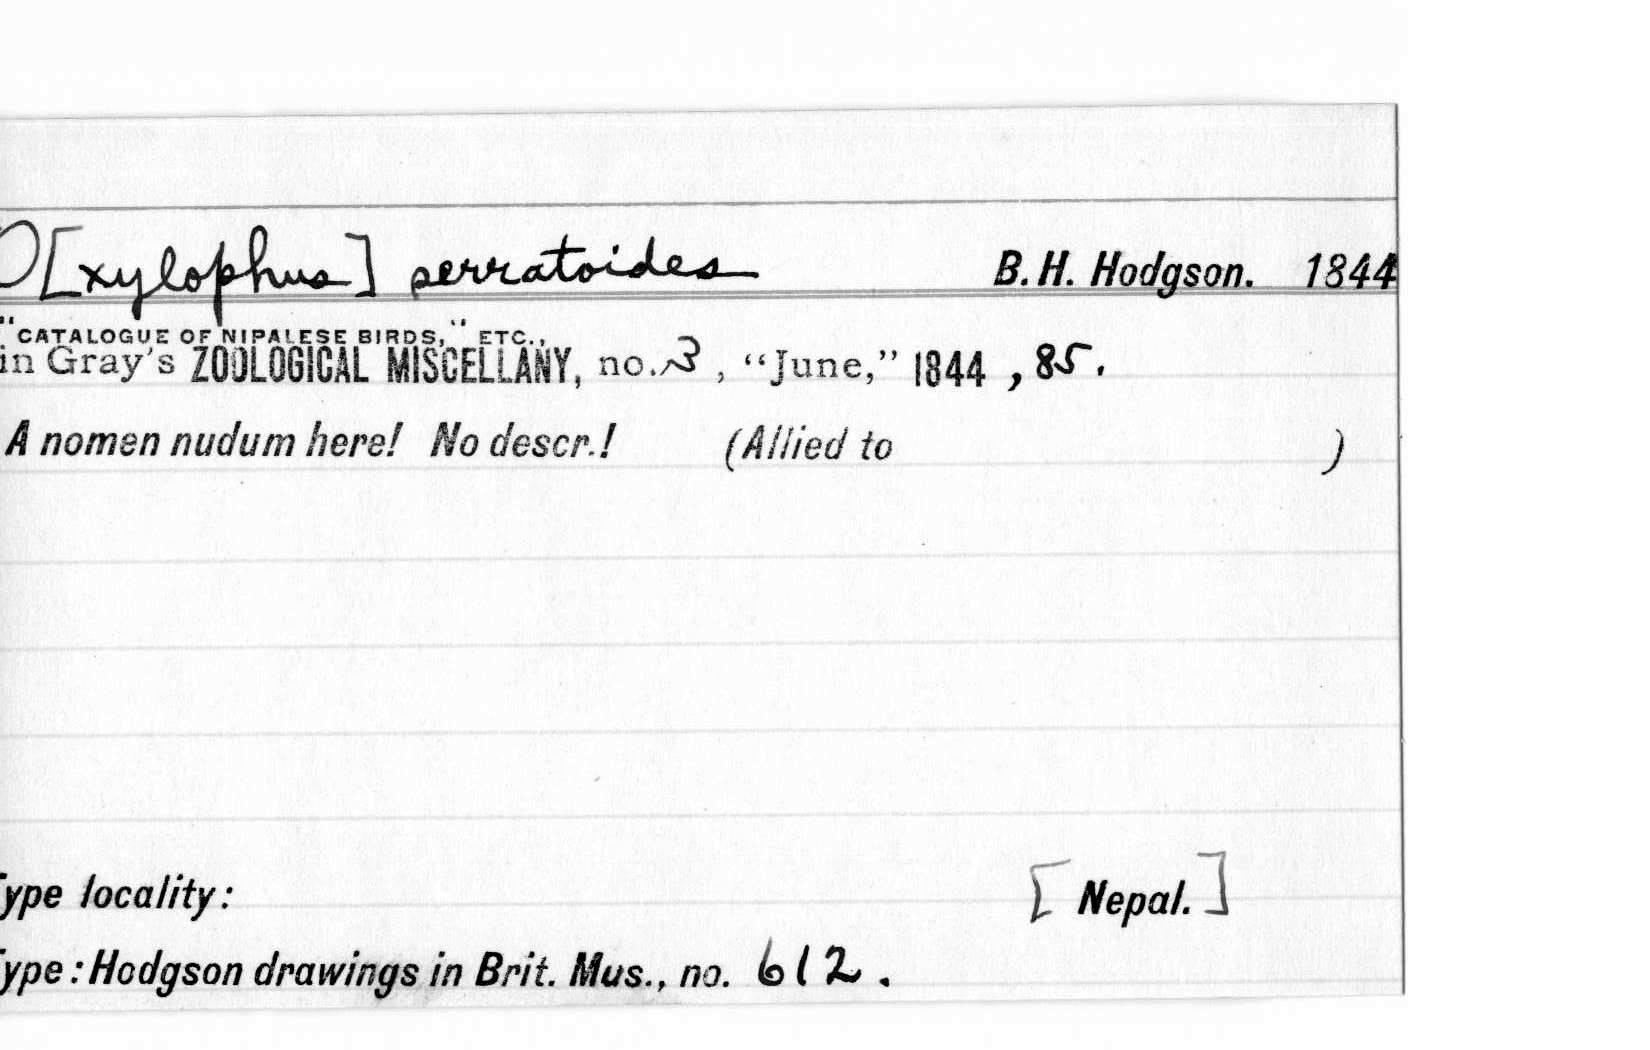 O[xylophus] serratoides B. H. Hodgson. 1844
"CATALOGUE OF NIPALESE BIRDS," ETC.,
in Gray's ZOOLOGICAL MISCELLANY, no. 3, "June," 1844, 85.
A nomen nudum here! No descr.! (Allied to )
Type locality: [Nepal.]
Type: Hodgson drawings in Brit. Mus., no. 612.